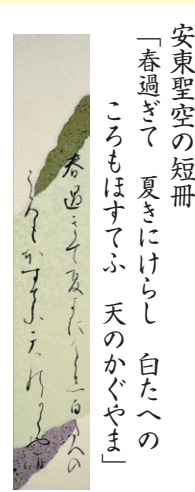 安東聖空の短冊
「春過ぎて　夏きにけらし　白たへの
ころもほすてふ　天のかぐやま」
春過きて夏きにけらし白たへの
ころもほすてふ天のかくやま